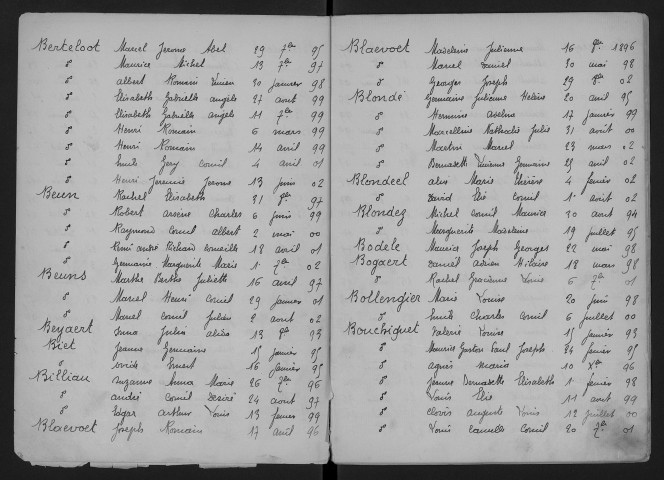 Berteloot Marcel Jerome Abel 29 7bre 95
d° Maurice Michel 13 7bre 97
d° Albert Romain Lucien 30 janvier 98
d° Elisabeth Gabrielle Angèle 27 aout 99
d° Elisabeth Gabrielle Angèle 11 7bre 99
d° Henri Romain 6 mars 99
d° Henri Romain 14 avril 99
d° Emile Gery Cornil 4 avril 01
d° Henri Jeremie Jerome 13 juin 02
Beun Rachel Elisabeth 31 8bre 97
d° Robert Arsène Charles 6 juin 99
d° Raymond Cornil Albert 2 mai 00
d° René André Richard Corneille 18 avril 01
d° Germaine Marguerite Marie 1er 7bre 02
Beuns Marthe Berthe Juliette 16 avril 97
d° Marcel Henri Cornil 29 janvier 01
d° Marcel Cornil Jules 2 aout 02
Beyaert Irma Julia 13 8bre 93
Biet Jeanne Germaine 15 janvier 95
d° Ernest 16 janvier 95
Billiau Suzanne Anna Marie 26 7bre 96
d° André Cornil Désiré 24 aout 97
d° Edgar Arthur Louis 13 janvier 99
Blaevoet Joseph Romain 17 avril 96
Blaevoet Madeleine Julienne 16 8bre 1896
d° Marcel Daniel 30 mai 98
d° Georges Joseph 29 8bre 02
Blondé Germaine Julienne Helène 20 avril 95
d° Hermine Avelina 17 janvier 99
d° Marcelline Nathalie Julie 31 août 00
d° Maetin Marcel 23 mars 02
d° Bernadette Lucienne Germaine 29 avril 02
Blondeel Alix Marie Thérèse 4 fevrier 02
d° David Elie Cornil 1er aout 02
Blondez Michel Cornil Maurice 30 aout 94
d° Marguerite Madeleine 19 juillet 95
Bodele Maurice Joseph Georges 22 mai 98
Bogaert Daniel Adrien Hilaire 18 mars 98
d° Rachel Gracienne Louise 6 7bre 01
Bollengier Marie Louise 20 juin 98
d° Emile Charles Cornil 6 juillet 00
Bouchiquet Valerie Louise 15 janvier 93
d° Maurice Gaston Paul Joseph 24 fevrier 95
d° Agnès Maria 10 Xbre 96
d° Jeanne Bernadette Elisabeth 1er fevrier 98
d° Louis Elie 11 aout 99
d° Clovis Auguste Louis 12 juillet 00
d° Louis Camille Cornil 20 7bre 01